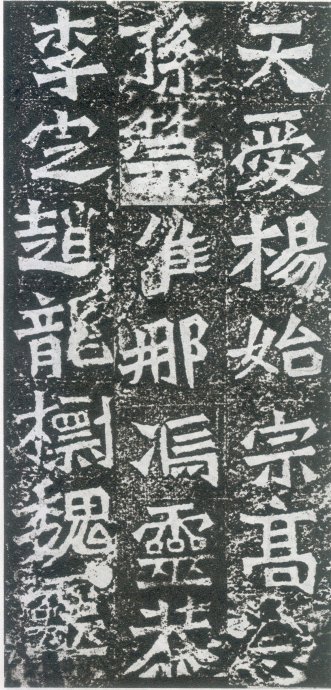 天愛楊始宗高
孫唯那馮靈恭
李趙龍標魏